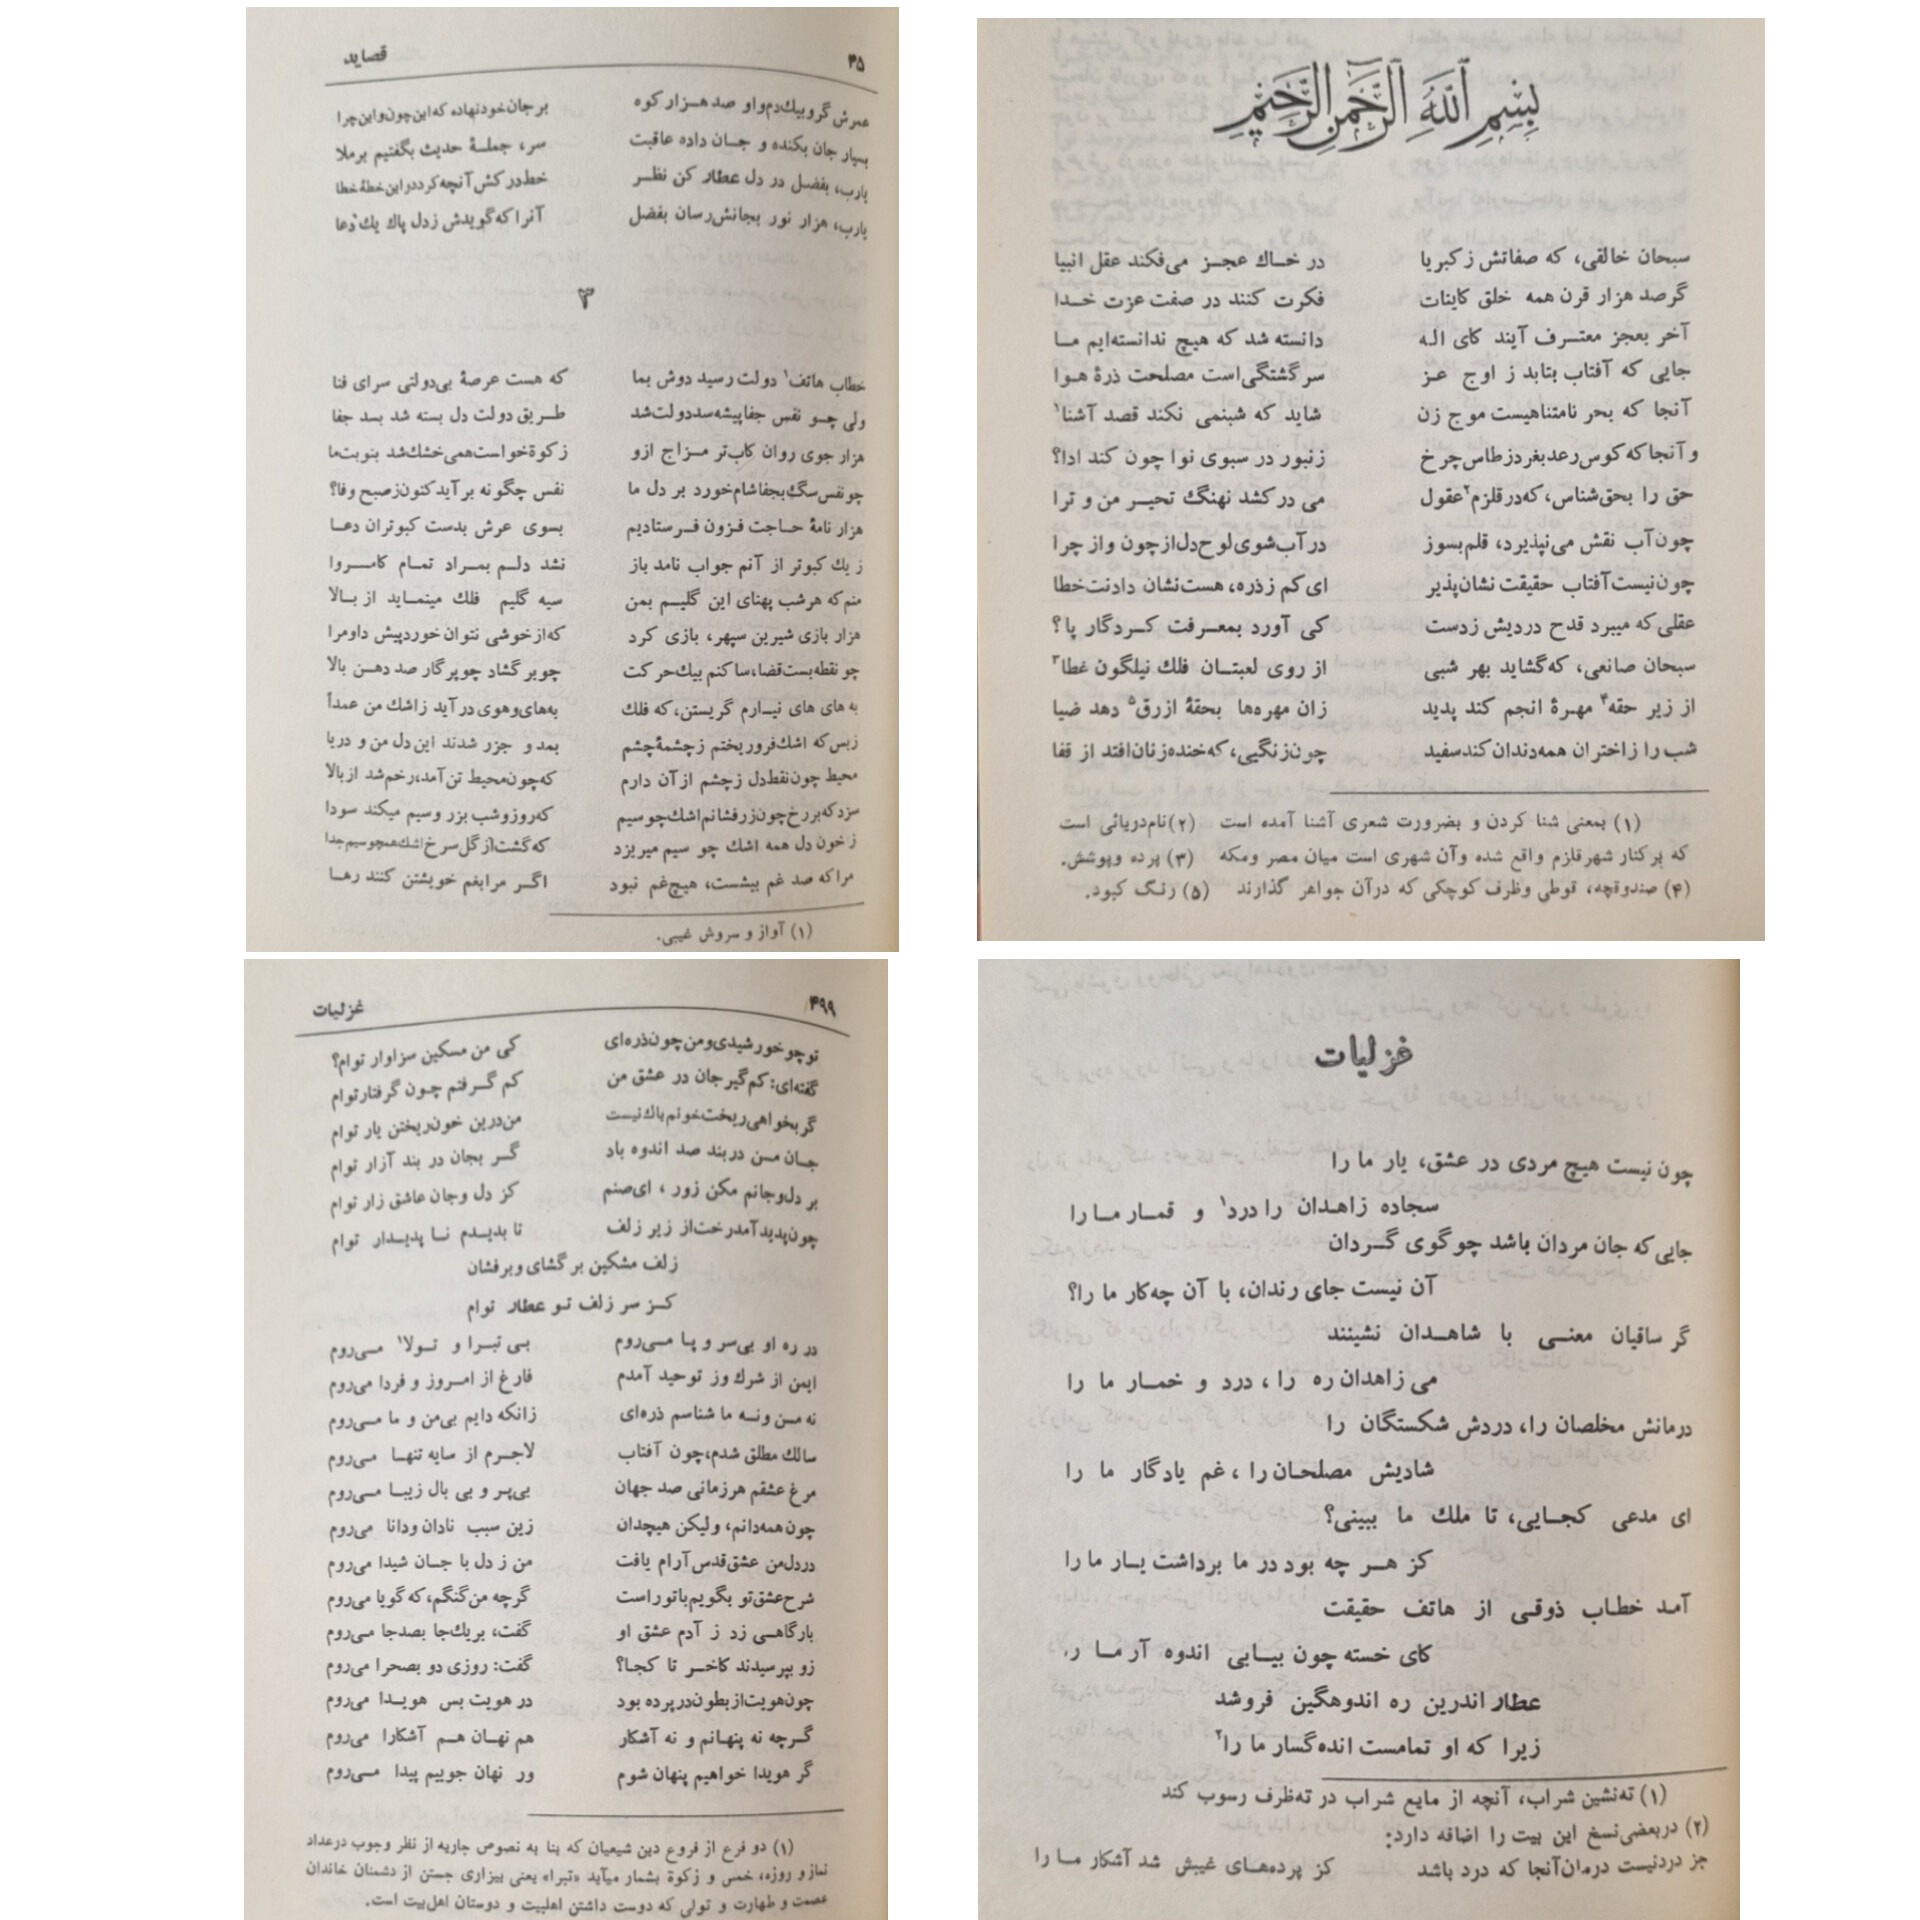 بسم الله الرحمن الرحیم
سبحان خالقی، که صفاتش زکبریا در خاك عجز می‌فکند عقل انبیا
گرصد هزار قرن همه خلق کاینات فکرت کنند در صفت عزت خدا
آخر بعجز معترف آیند کای اله دانسته شد که هیچ ندانسته‌ایم ما
جایی که آفتاب بتابد ز اوج عز سرگشتگی‌است مصلحت ذرهٔ هوا
آنجا که بحر نامتناهیست موج زن شاید که شبنمی نکند قصد آشنا۱
و آنجا که کوس رعد بغرد ز طاس چرخ زنبور در سبوی نوا چون کند ادا؟
حق را بحق‌شناس، که در قلزم۲ عقول می درکشد نهنگ تحیر من و ترا
چون آب نقش می‌نپذیرد، قلم بسوز در آب شوی لوح دل از چون و از چرا
چون نیست آفتاب حقیقت نشان‌پذیر ای کم ز ذره، هست نشان دادنت خطا
عقلی که میبرد قدح دردیش زدست کی آورد بمعرفت کردگار پا؟
سبحان صانعی، که گشاید بهر شبی از روی لعبتان فلك نیلگون غطا۳
از زیر حقه۴ مهرهٔ انجم کند پدید زان مهره‌ها بحقهٔ ازرق۵ دهد ضیا
شب را ز اختران همه دندان کند سفید چون زنگیی، که خنده زنان افتد از قفا
(۱) بمعنی شنا کردن و بضرورت شعری آشنا آمده است (۲) نام دریائی است
که برکنار شهر قلزم واقع شده و آن شهری است میان مصر ومکه (۳) پرده وپوشش.
(۴) صندوقچه، قوطی وظرف کوچکی که در آن جواهر گذارند (۵) رنگ کبود.
۴۵ قصاید
عمرش گرو بیك دم و او صد هزار کوه بر جان خود نهاده که این چون و این چرا
بسیار جان بکنده و جان داده عاقبت سر، جملهٔ حدیث بگفتیم برملا
یارب، بفضل در دل عطار کن نظر خط در کش آنچه کرد در این خطهٔ خطا
یارب، هزار نور بجانش رسان بفضل آنرا که گویدش زدل پاك یك دعا
۳
خطاب هاتف۱ دولت رسید دوش بما که هست عرصهٔ بی‌دولتی سرای فنا
ولی چو نفس جفاپیشه سد دولت شد طریق دولت دل بسته شد بسد جفا
هزار جوی روان کاب‌تر مزاج ازو زکوة خواست همی خشك شد بنوبت ما
چو نفس سگ بجفا شام خورد بر دل ما نفس چگونه برآید کنون ز صبح وفا؟
هزار نامهٔ حاجت فزون فرستادیم بسوی عرش بدست کبوتران دعا
ز یك کبوتر از آنم جواب نامد باز نشد دلم بمراد تمام کامروا
منم که هرشب پهنای این گلیم بمن سیه گلیم فلك مینماید از بالا
هزار بازی شیرین سپهر، بازی کرد که از خوشی نتوان خورد پیش داو مرا
چو نقطه بست قضا، ساکنم بیك حرکت چو برگشاد چو پرگار صد دهن بالا
به های های نیارم گریستن، که فلك به‌های‌وهوی درآید زاشك من عمداً
زبس که اشك فرو ریختم ز چشمهٔ چشم بمد و جزر شدند این دل من و دریا
محیط چون نقط دل ز چشم از آن دارم که چون محیط تن آمد، رخم شد از بالا
سزد که بر رخ چون زر فشانم اشك چو سیم که روز و شب بزر وسیم میکند سودا
ز خون دل همه اشك چو سیم میریزد که گشت از گل سرخ اشك همچو سیم جدا
مرا که صد غم بیشست، هیچ غم نبود اگر مرا بغم خویشتن کنند رها
(۱) آواز و سروش غیبی.
غزلیات
چون نیست هیچ مردی در عشق، یار ما را
سجاده زاهدان را درد۱ و قمار ما را
جایی که جان مردان باشد چو گوی گردان
آن نیست جای رندان، با آن چه‌کار ما را؟
گر ساقیان معنی با شاهدان نشینند
می زاهدان ره را، درد و خمار ما را
درمانش مخلصان را، دردش شکستگان را
شادیش مصلحان را، غم یادگار ما را
ای مدعی کجایی، تا ملك ما ببینی؟
کز هر چه بود در ما برداشت یار ما را
آمد خطاب ذوقی از هاتف حقیقت
کای خسته چون بیابی اندوه آر ما را
عطار اندرین ره اندوهگین فروشد
زیرا که او تمامست انده گسار ما را۲
(۱) ته‌نشین شراب، آنچه از مایع شراب در ته‌ظرف رسوب کند
(۲) در بعضی نسخ این بیت را اضافه دارد:
جز درد نیست درمان آنجا که درد باشد کز پرده‌های غیبش شد آشکار ما را
۴۹۹ غزلیات
تو چو خورشیدی و من چون ذره‌ای کی من مسکین سزاوار توام؟
گفته‌ای: کم گیر جان در عشق من کم گرفتم چون گرفتار توام
گر بخواهی ریخت خونم باك نیست من درین خون ریختن یار توام
جان من در بند صد اندوه باد گر بجان در بند آزار توام
بر دل و جانم مکن زور ، ای صنم کز دل و جان عاشق زار توام
چون پدید آمد رخت از زیر زلف تا بدیدم نا پدیدار توام
زلف مشکین برگشای و برفشان
کز سر زلف تو عطار توام
در ره او بی‌سر و پا می‌روم بی تبرا و تولا۱ می‌روم
ایمن از شرك وز توحید آمدم فارغ از امروز و فردا می‌روم
نه من و نه ما شناسم ذره‌ای زانکه دایم بی‌من و ما می‌روم
سالك مطلق شدم، چون آفتاب لاجرم از سایه تنها می‌روم
مرغ عشقم هر زمانی صد جهان بی‌پر و بی بال زیبا می‌روم
چون همه دانم، ولیکن هیچدان زین سبب نادان و دانا می‌روم
در دل من عشق قدس آرام یافت من ز دل با جان شیدا می‌روم
شرح عشق تو بگویم با تو راست گرچه من گنگم، که گویا می‌روم
بارگاهی زد ز آدم عشق او گفت، بر یك‌جا بصد جا می‌روم
زو بپرسیدند کاخر تا کجا؟ گفت: روزی دو بصحرا می‌روم
چون هویت از بطون در پرده بود در هویت بس هویدا می‌روم
گرچه نه پنهانم و نه آشکار هم نهان هم آشکارا می‌روم
گر هویدا خواهیم پنهان شوم ور نهان جوییم پیدا می‌روم
(۱) دو فرع از فروع دین شیعیان که بنا به نصوص جاریه از نظر وجوب درعداد
نماز و روزه، خمس و زکوة بشمار میآید «تبرا» یعنی بیزاری جستن از دشمنان خاندان
عصمت و طهارت و تولی که دوست داشتن اهلبیت و دوستان اهل‌بیت است.